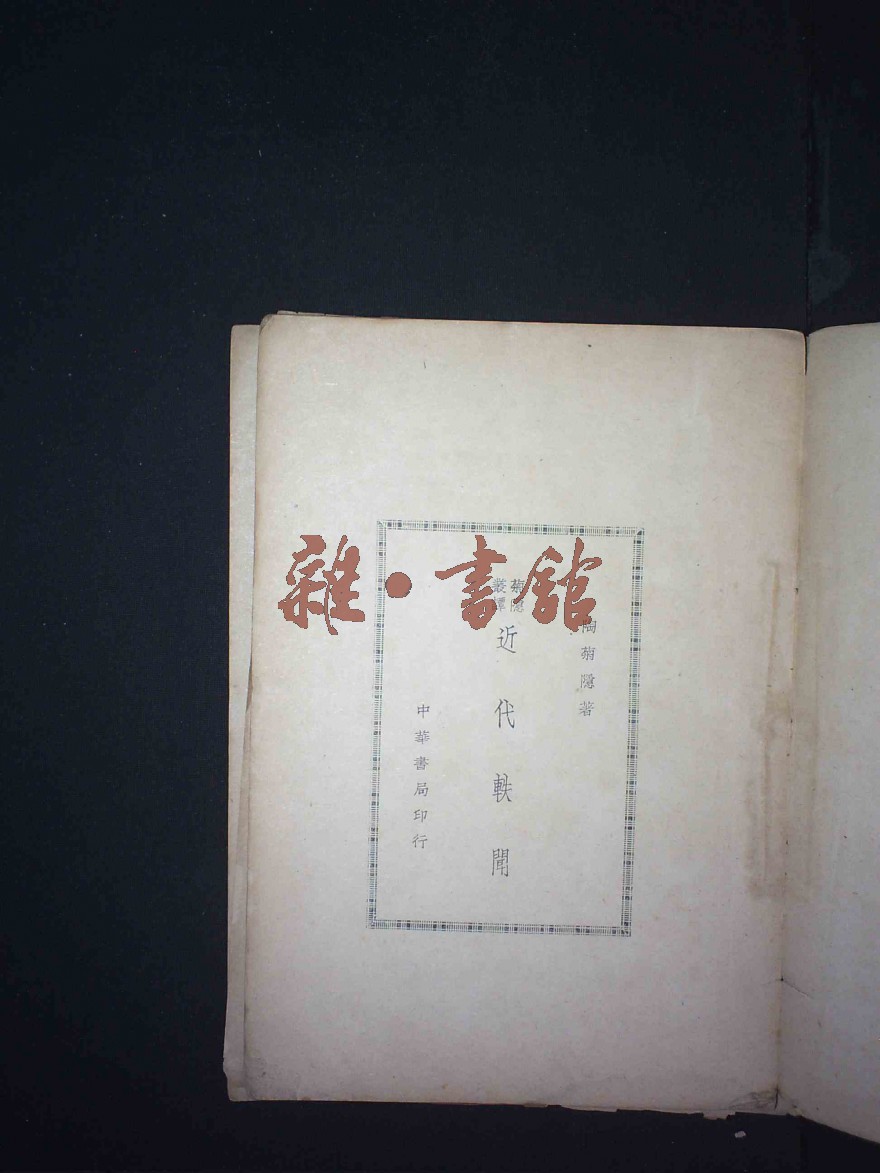 雜·書館
陶菊隱著
菊隱
叢譚
近代軼聞
中華書局印行